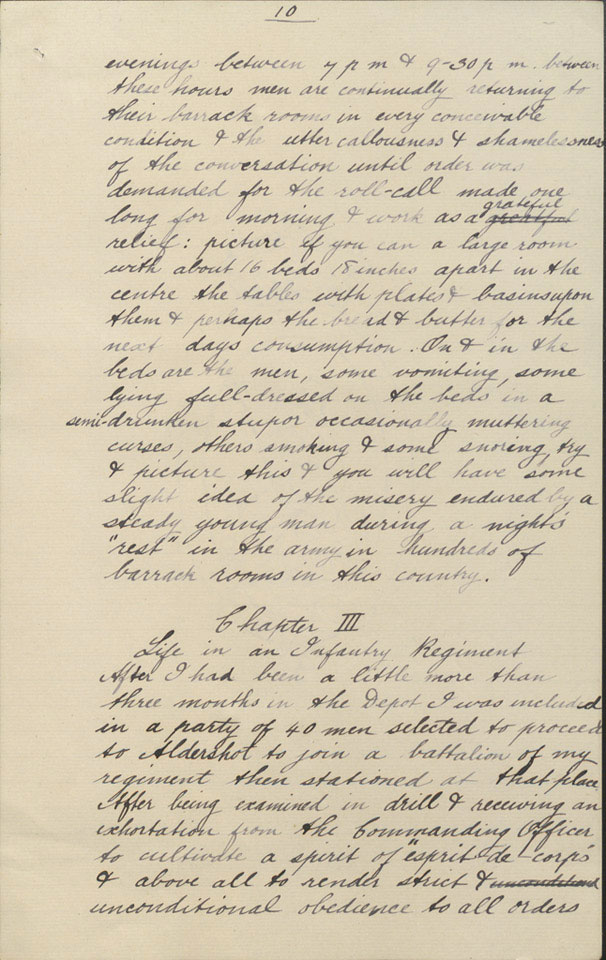 10
evenings between 7 p m & 9-30 p m. between
these hours men are continually returning to
their barrack rooms in every conceivable
condition & the utter callousness & shamelessness
of the conversation until order was
demanded for the roll-call made one
long for morning & work as a greatful grateful
relief: picture if you can a large room
with about 16 beds 18 inches apart in the
centre the tables with plates & basins upon
them & perhaps the bread & butter for the
next days consumption. On & in the
beds are the men, some vomiting, some
lying full-dressed on the beds in a
semi-drunken stupor occasionally muttering
curses, others smoking & some snoring, try
& picture this & you will have some
slight idea of the misery endured by a
steady young man during a night's
"rest" in the army in hundreds of
barrack rooms in this country.
Chapter III
Life in an Infantry Regiment
After I had been a little more than
three months in the Depot I was included
in a party of 40 men selected to proceed
to Aldershot to join a battalion of my
regiment then stationed at that place
After being examined in drill & receiving an
exhortation from the Commanding Officer
to cultivate a spirit of "esprit-de-corps
& above all to render strict &
unconditional obedience to all orders